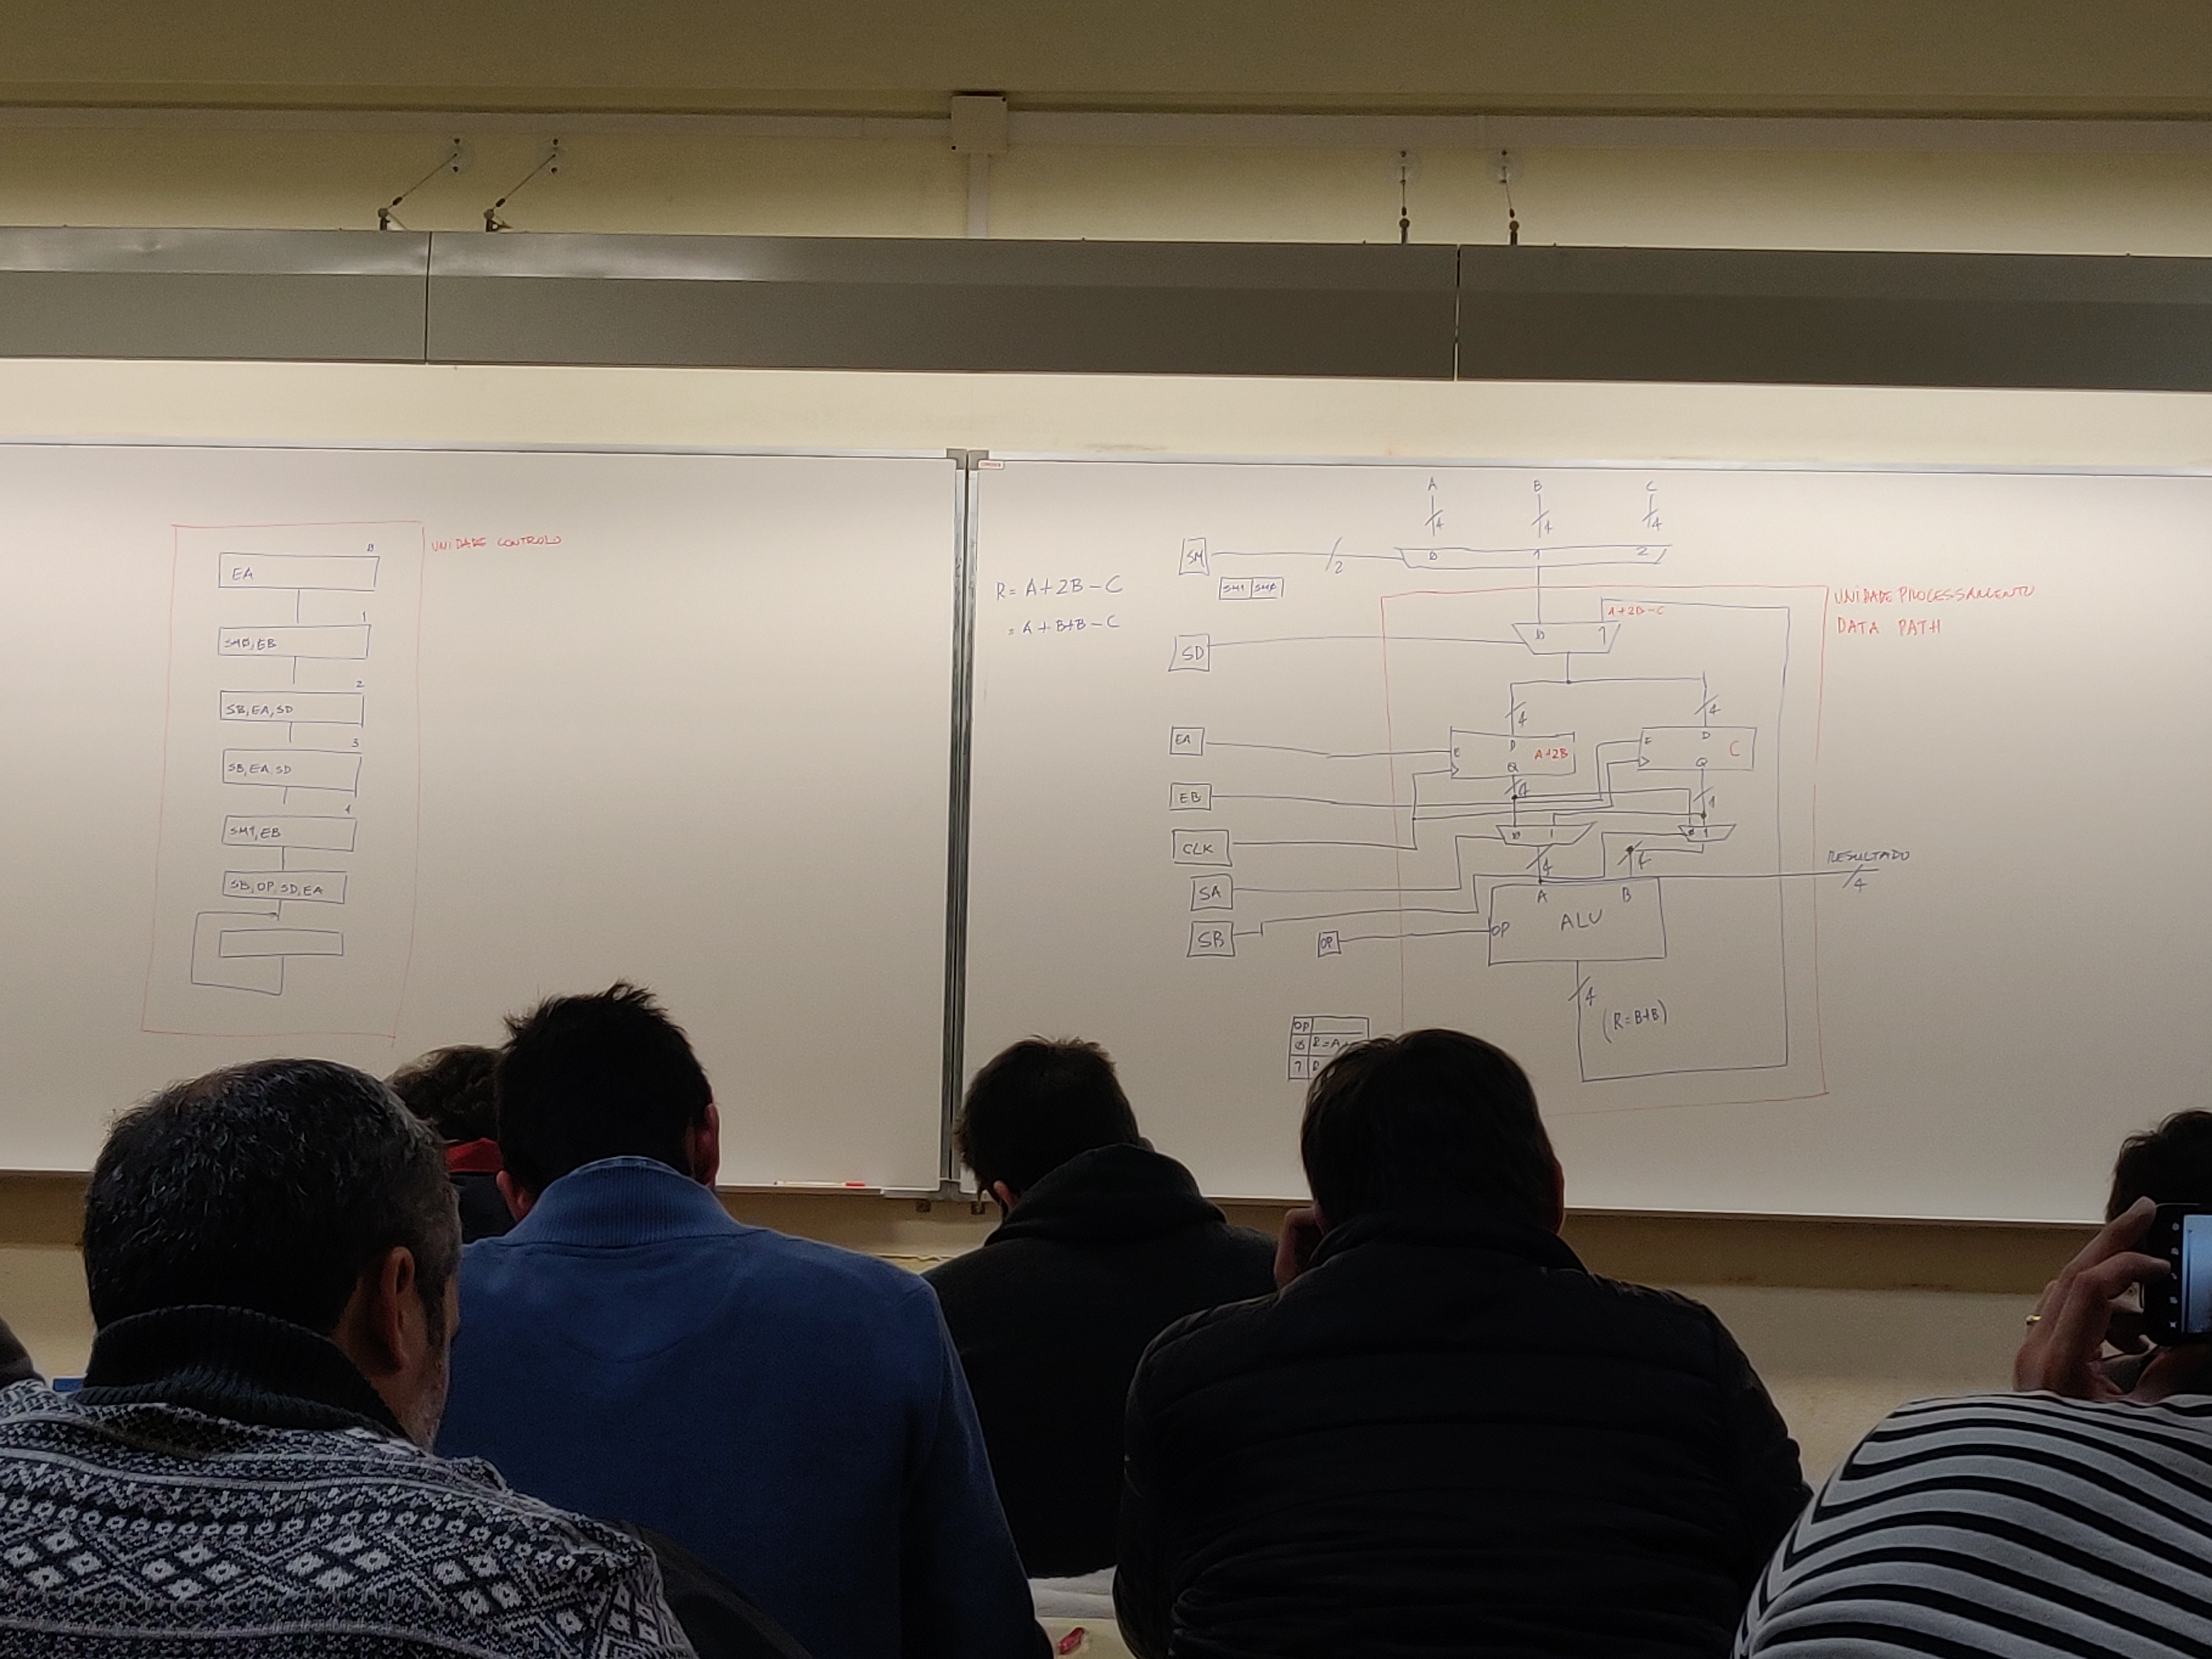 UNIDADE CONTROLO
0
EA
1
SM0, EB
2
SB, EA, SD
3
SB, EA, SD
4
SM1, EB
SB, OP, SD, EA
R = A+2B-C
= A+B+B-C
A B C
4 4 4
SM
2
0 1 2
SM1 SM0
UNIDADE PROCESSAMENTO
DATA PATH
A+2B-C
SD
0 1
4 4
EA
E D A+2B
Q
E D C
Q
EB
4
CLK
0 1
0 1
4 4
RESULTADO
4
SA
SB
OP
OP
A B
ALU
4
(R=B+B)
OP
0 R=A+
1